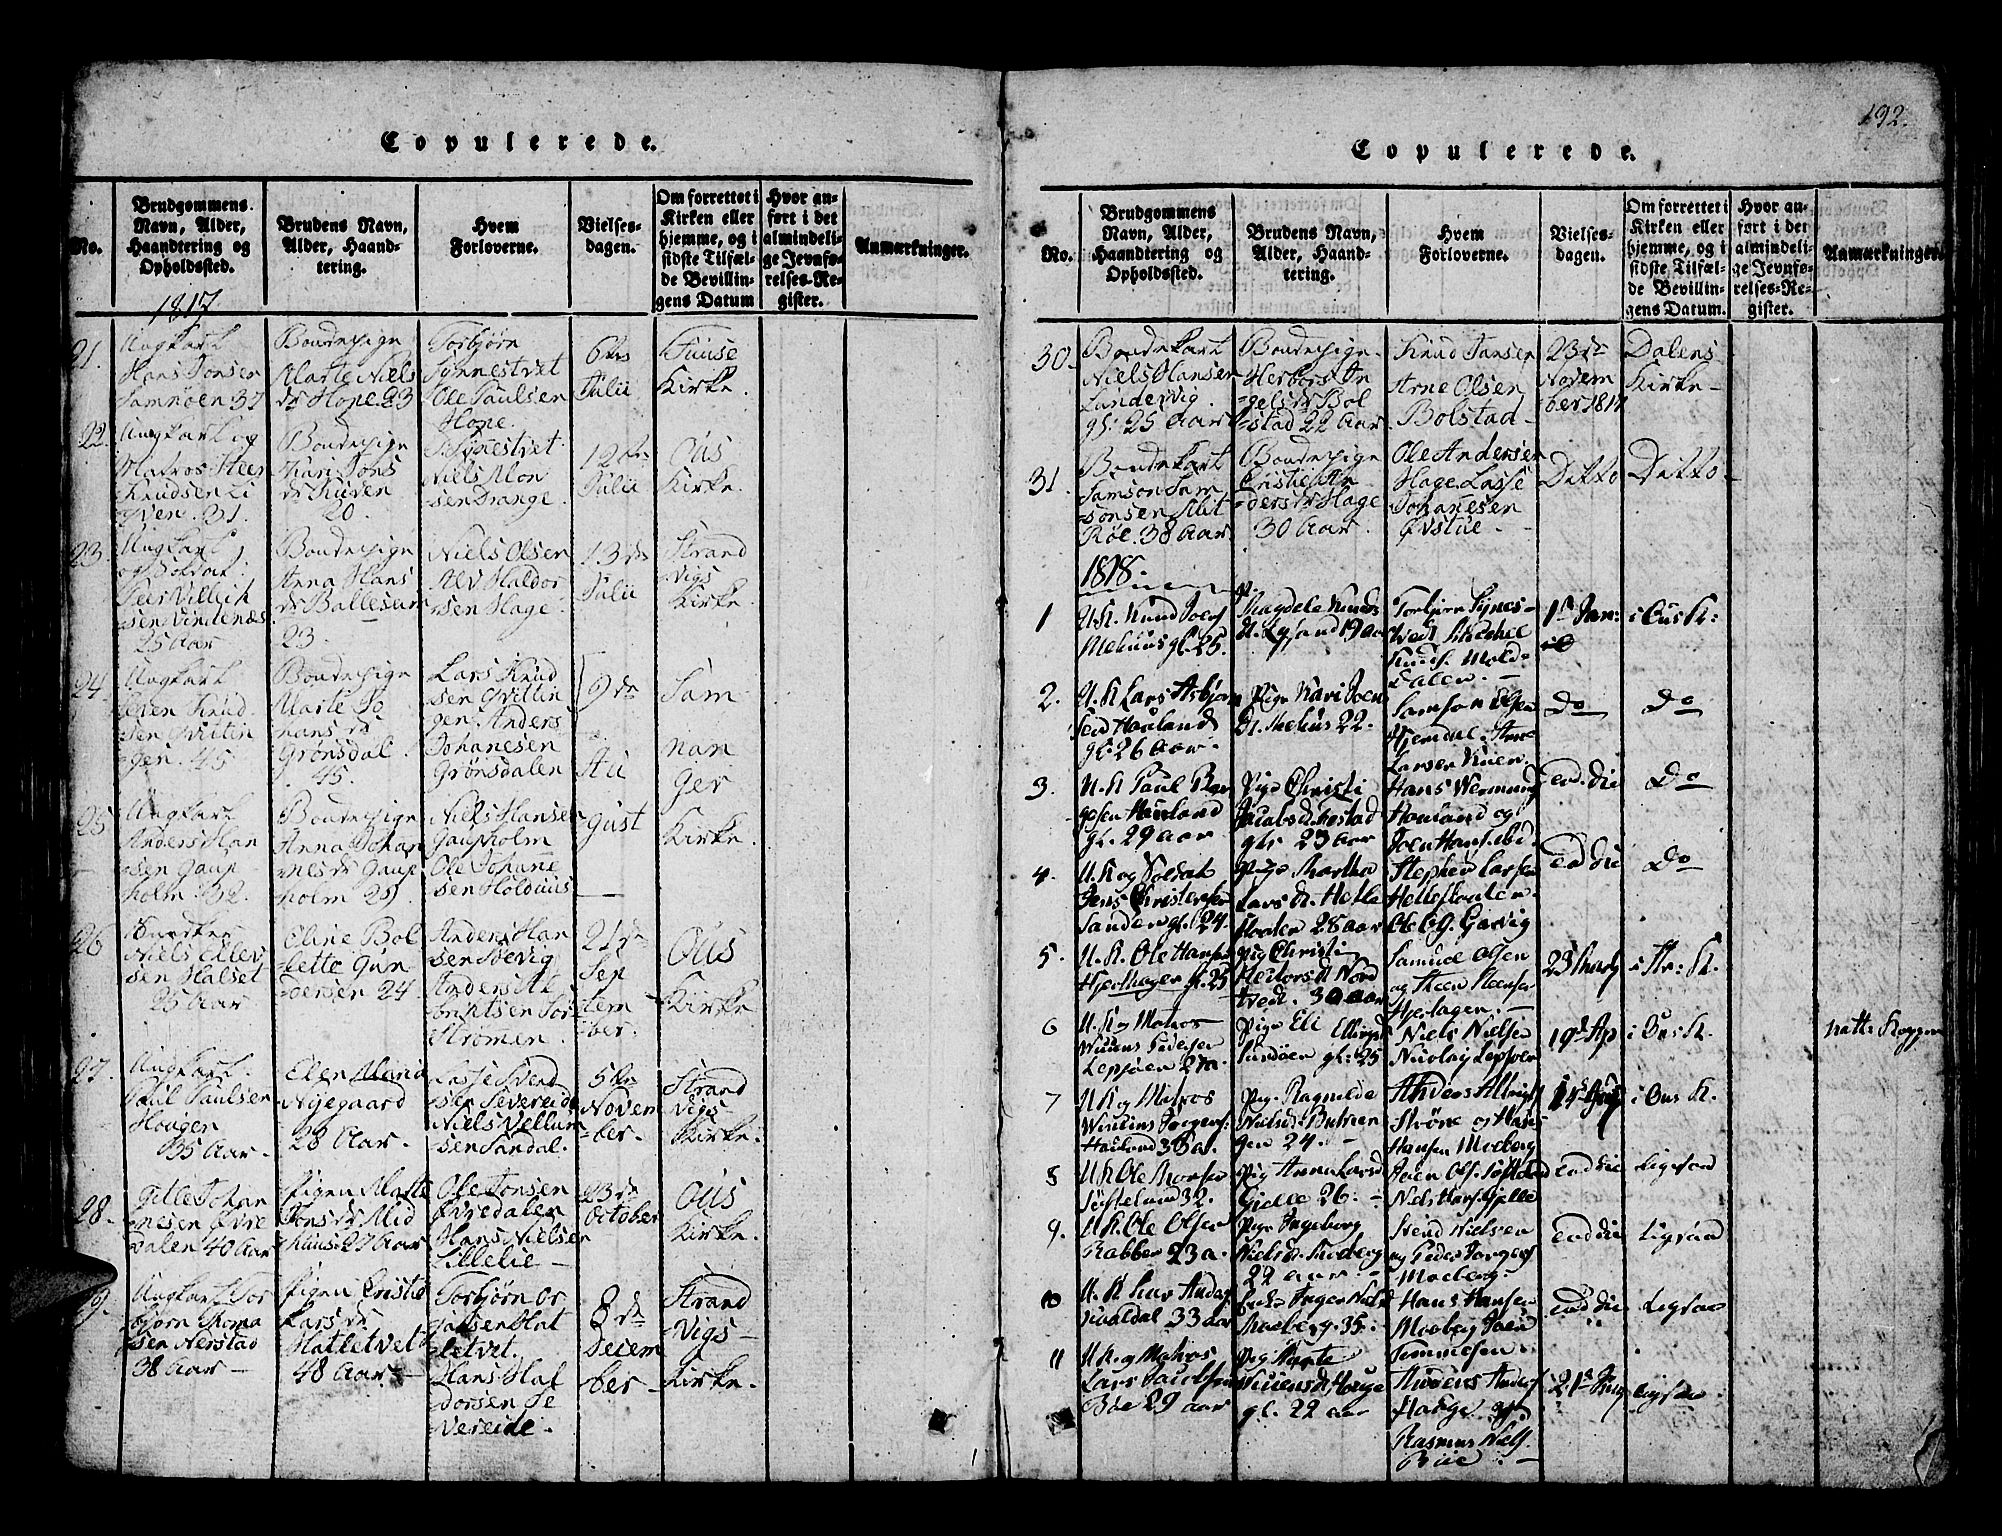 Copulerede.
No.
Brudgommens Navn, Alder, Haandtering og Opholdssted.
Brudens Navn, Alder, Haandtering.
Hvem Forloverne.
Vielsesdagen.
Om forrettet i Kirken eller hjemme, og i sidste Tilfælde Bevillingens Datum
Hvor anført i det almindelige Jevnførelses-Register.
Anmærkninger.
1817
21.
Ungkarl
Hans Jonsen
Samnøen 37
Bondepige
Marte Niels
dr Hope 23
Torbjørn
Synnestvet
Ole Paulsen
Hope.
6te
Julii
Fuuse
Kirke.
22.
Ungkarl og
Matros
Knudsen Li
gven. 31.
Bondepige
Kari Jons
dr Kuven
20.
Synnestvet
Niels Mon
sen Drange.
12te
Julii
Ous
Kirke.
23.
Ungkarl
og Soldat
Peer Villich
sen Vindenæs
25 Aar
Bondepige
Anna Hans
dr Ballesem
23.
Niels Olsen
Alv Haldor
sen Hage.
13de
Julii
Strand
Vigs
Kirke.
24
Ungkarl
Sven Knud
sen Qvittin
gen. 45
Bondepige
Marte Jo
hans dr
Grønsdal.
45.
Lars Knud
sen Qvittin
gen. Anders
Johanesen
Grønsdalen
9de
Au
gust
Sam
nan
ger
Kirke.
25
Ungkarl
Anders Han
sen Gaup
holm. 32.
Bondepige
Anna Johan
nesdr Gaup
holm 25
Niels Hansen
Gaupholm
Ole Johane
sen Holduus
26
Niels Ellev
sen Halset
25 Aar
Eline Bol
lette Gun
dersen 24.
Anders Han
sen Søevig
Anders Al
brigtsen Sør
Strømen.
21de
Sep
tem
ber.
Ous
Kirke
27.
Ungkarl.
Poul Paulsen
Haugen
35 Aar.
Elen Maria
Nyegaard
28 Aar.
Lasse Svend
sen Severeide
Niels Vellum
sen Sandal.
5te
Novem
ber.
Strand
Vigs
Kirke.
28.
Gitle Johan
nesen Øvre
Dalen 40 Aar
Pigen Marte
Jons dr Mid
thuus 27 Aar
Ole Jonsen
Øvredalen
Hans Nielsen
Lillelie
23de
October
Ous
Kirke.
29.
Ungkarl Tor
bjørn Thoma
sen Nerstad
38 Aar
Pigen Cristie
Lars dr
Hatletvet
48 Aar
Torbjørn Or
jansen Hat
letvet.
Hans Hal
dorsen Se
Vereide.
8de
Decem
ber
Strand
Vigs
Kirke.
192.
Copulerede.
No.
Brudgommens Navn, Alder, Haandtering og Opholdssted.
Brudens Navn, Alder, Haandtering.
Hvem Forloverne.
Vielsesdagen.
Om forrettet i Kirken eller hjemme, og i sidste Tilfælde Bevillingens Datum.
Hvor anført i det almindelige Jevnførelses-Register.
Anmærkninger.
30.
Bondekarl
Niels Hansen
Lundervig.
gl: 25 Aar
Bondepige
Herbors In
gelsdr Bol
stad 22 Aar
Knud Jansen
Arne Olsen
Bolstad
23de
Novem
ber 1817
Dalens
Kirke
31.
Bondekarl
Samson Sam
sonsen
Røe. 38 Aar
Bondepige
Cristie An
dersdr Hage
30 Aar.
Ole Andersen
Hage Lasse
Johanesen
Øvstue
Ditto
Ditto
1818.
1
U.K. Knud Joens
Melhuus gl. 25.
Magdele Knuds
d. Lysand 19 aar
Torbjørn Synes
tvedt
Knuds. Mold
Dalen.
1st Jan:
i Ous K:
2.
U. K Lars Asbjørn
sen Hauland
gl. 26 aar.
Pige Kari Joen
d. Melhus 22.
Samson Olsen
Hjemdal.
Larsen Kuen.
Do
Do
3.
U. K Paul
Hauland
gl. 29 aar
Pige Christi
Jacobsd.
gl. 23 aar
Hans Wermund
Hauland og
Joen Hans. ibid.
end die
Do
4.
U. K og Soldat
Jens Christensen
Sanden gl. 24.
Pige Martha
Lars d. Hetle
floten 28 aar
Stephen Larsen
Hetlefloten
Ole Gjævig
end die
Do
5.
U. K. Ole Hans
Hjelthager gl. 25
Pig Christi
Nord
tvedt. 30 aar
Samuel Olsen
og Steen Steens
Hjertagen.
23 Marty
i Str: K.
6
U. K og Matros
Willem Pedersen
Lepsøen 27 a
Pige Eli Ellings
Sundøen gl: 25
Niels Nielsen
Nicolay Lepsøen
19d Ap
i Ous K.
7
U K og Matros
Willum Jorgens
Hauland 38 a.
Pig. Ragnilde
Nielsd. Buttien
gen 24.
Anders Albrigts
Strøne og Hans
Hansen Moberg
i Ous K.
8
U K Ole Monsen
Søfteland 32.
Pig Anna Larsd
Gjelle 26.
Joen Ols. Søfteland
Niels Hans. Gjelle
end die
Ligesaa
9.
U. K. Ole Olsen
Rabben 23 a.
Pige Ingeborg
Nielsd. Moberg
22 aar.
Svend Nielsen
og Peder Jorgens
Moeberg.
end die
Ligesaa
10
U. K
33 aar
Enke Inger Niels
Moeberg. 35.
Hans Hansen
Moeberg Joen
Simmesen
end die
Ligesaa
11
U K. og Matros
Lars Jacobsen
Bøe 29 aar
Pig Marte
Willumsd. Hauge
gl. 22 aar
Anders Anders
Hauge og
Rasmus Niels.
Bøe.
21st Aug
Ligesaa